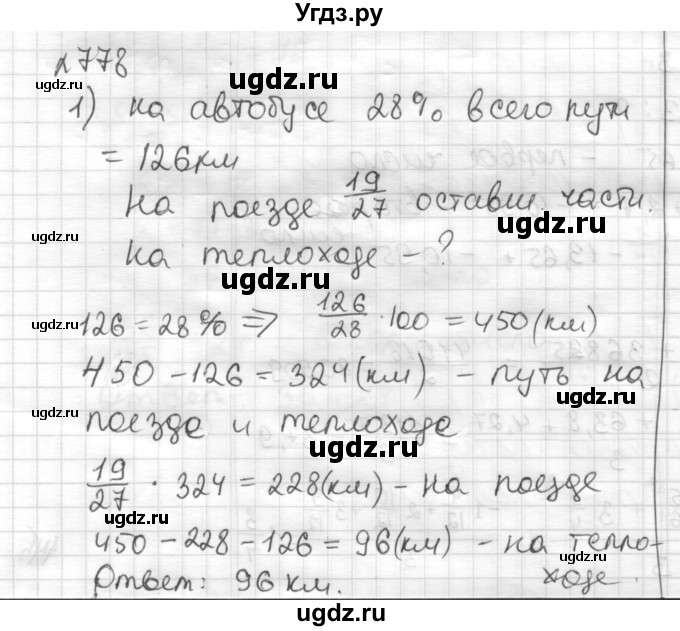 Угдз.ру
№778
ugdz.ru
1) на автобусе 28% всего пути
ugdz.ru ugdz.ru
= 126 км
На поезде 19/27 оставш. части.
ugdz.ru ugdz.ru
на теплоходе - ?
ugdz.ru
126 = 28% ⇒ 126/28 · 100 = 450 (км)
ugdz.ru ugdz.ru
450 - 126 = 324 (км) - путь на
ugdz.ru ugdz.ru
поезде и теплоходе
ugdz.ru
19/27 · 324 = 228 (км) - на поезде
ugdz.ru
450 - 228 - 126 = 96 (км) - на тепло-
ugdz.ru ugdz.ru
ходе.
Ответ: 96 км.
ugdz.ru